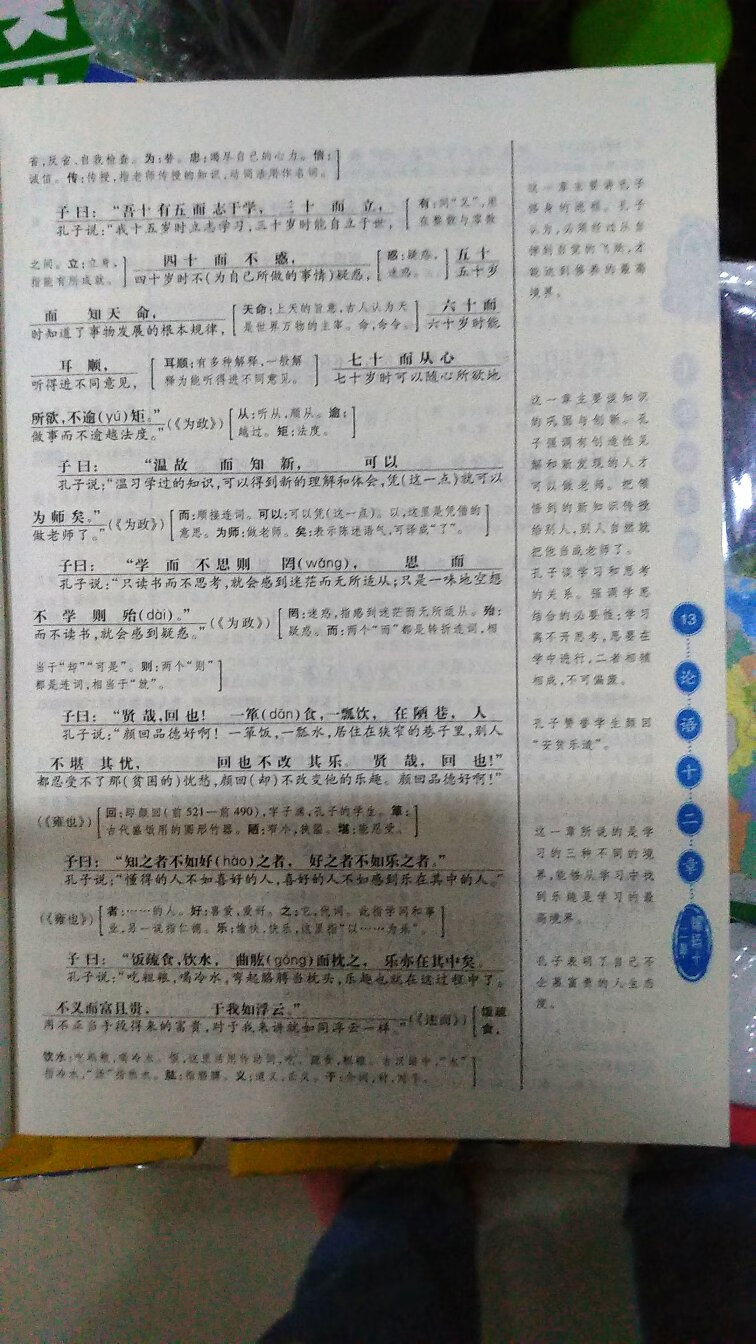 省,反省、自我检查。为:替。忠:竭尽自己的心力。信:
诚信。传:传授,指老师传授的知识,动词活用作名词。
子曰:“吾十有五而志于学, 三十而立,
孔子说:“我十五岁时立志学习,三十岁时能自立于世,
有:同“又”,用
在整数与零数
之间。立:立身,
指能有所成就。
四十而不惑,
四十岁时不(为自己所做的事情)疑惑,
惑:疑惑,
迷惑。
五十
五十岁
而知天命,
时知道了事物发展的根本规律,
天命:上天的旨意,古人认为天
是世界万物的主宰。命,命令。
六十而
六十岁时能
耳顺,
听得进不同意见,
耳顺:有多种解释,一般解
释为能听得进不同意见。
七十而从心
七十岁时可以随心所欲地
所欲,不逾(yú)矩。”
做事而不逾越法度。”
(《为政》)
从:听从,顺从。逾:
越过。矩:法度。
子曰: “温故而知新, 可以
孔子说:“温习学过的知识,可以得到新的理解和体会,凭(这一点)就可以
为师矣。”
做老师了。”
(《为政》)
而:顺接连词。可以:可以凭(这一点)。以,这里是凭借的
意思。为师:做老师。矣:表示陈述语气,可译成“了”。
子曰: “学而不思则罔(wǎng), 思而
孔子说:“只读书而不思考,就会感到迷茫而无所适从;只是一味地空想
不学则殆(dài)。”
而不读书,就会感到疑惑。”
(《为政》)
罔:迷惑,指感到迷茫而无所适从。殆:
疑惑。而:两个“而”都是转折连词,相
当于“却”“可是”。则:两个“则”
都是连词,相当于“就”。
子曰:“贤哉,回也! 一箪(dān)食,一瓢饮, 在陋巷, 人
孔子说:“颜回品德好啊! 一箪饭,一瓢水,居住在狭窄的巷子里,别人
不堪其忧, 回也不改其乐。 贤哉,回也!”
都忍受不了那(贫困的)忧愁,颜回(却)不改变他的乐趣。颜回品德好啊!”
(《雍也》)
回:即颜回(前521—前490),字子渊,孔子的学生。箪:
古代盛饭用的圆形竹器。陋:窄小,狭隘。堪:能忍受。
子曰: “知之者不如好(hào)之者, 好之者不如乐之者。”
孔子说:“懂得的人不如喜好的人,喜好的人不如感到乐在其中的人。”
(《雍也》)
者:……的人。好:喜爱,爱好。之:它,代词。此指学问和事
业,另一说指仁德。乐:愉快,快乐,这里指“以……为乐”。
子曰:“饭疏食,饮水, 曲肱(gōng)而枕之, 乐亦在其中矣。
孔子说:“吃粗粮,喝冷水,弯起胳膊当枕头,乐趣也就在这过程中了。
不义而富且贵, 于我如浮云。”
用不正当手段得来的富贵,对于我来讲就如同浮云一样。”
(《述而》)
饭疏
食,
饮水:吃粗粮,喝冷水。饭,这里活用作动词,吃。疏食,粗粮。古汉语中,“水”
指冷水,“汤”指热水。肱:指胳膊。义:道义,正义。于:介词,对,对于。
这一章主要讲孔子
修身的进程。孔子
认为,必须经过从自
律到自觉的飞跃,才
能达到修养的最高
境界。
这一章主要谈知识
的巩固与创新。孔
子强调有创造性见
解和新发现的人才
可以做老师。把领
悟到的新知识传授
给别人,别人自然就
把他当成老师了。
孔子谈学习和思考
的关系。强调学思
结合的必要性:学习
离不开思考,思要在
学中进行,二者相辅
相成,不可偏废。
孔子赞誉学生颜回
“安贫乐道”。
这一章所说的是学
习的三种不同的境
界,能够从学习中找
到乐趣是学习的最
高境界。
孔子表明了自己不
企慕富贵的人生态
度。
13
论
语
十
二
章